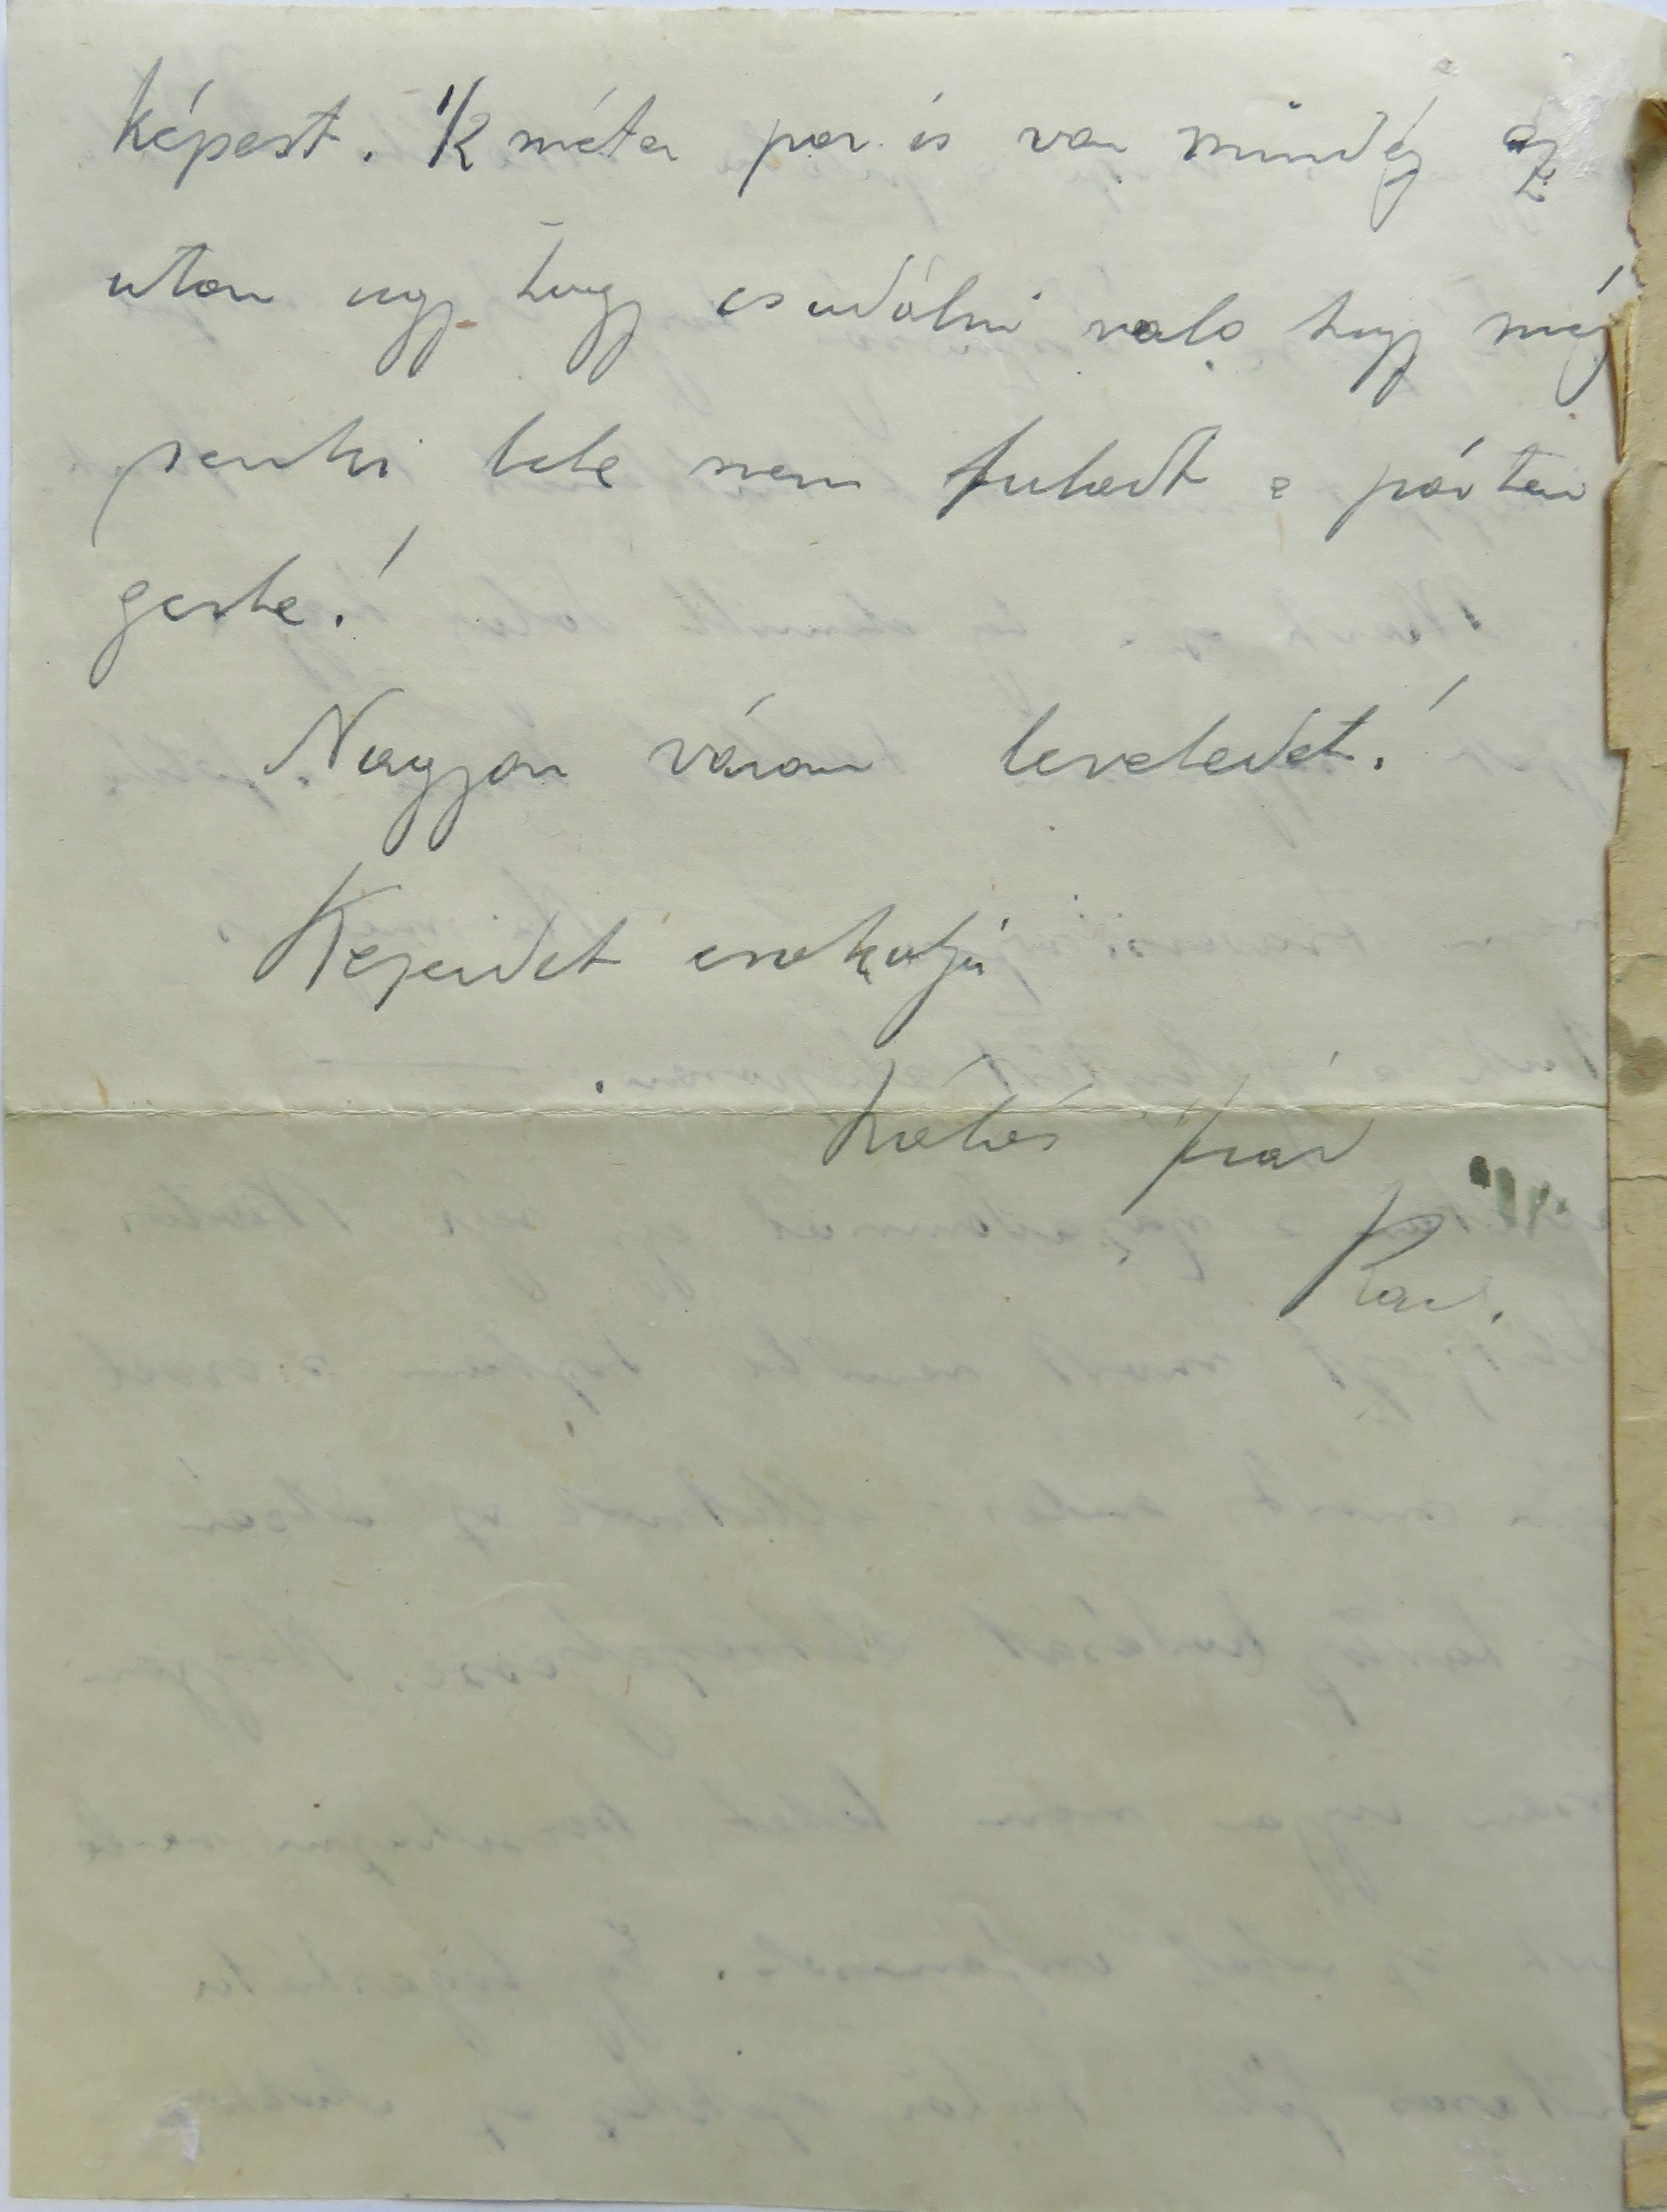 képest. 1/2 méter por is van mindég az
uton ugy hogy csudálni valo hogy még
senki bele nem fuladt a pórten
gerbe!
Nagyon várom leveledet!
Kezeidet csokolja
hálás fiad